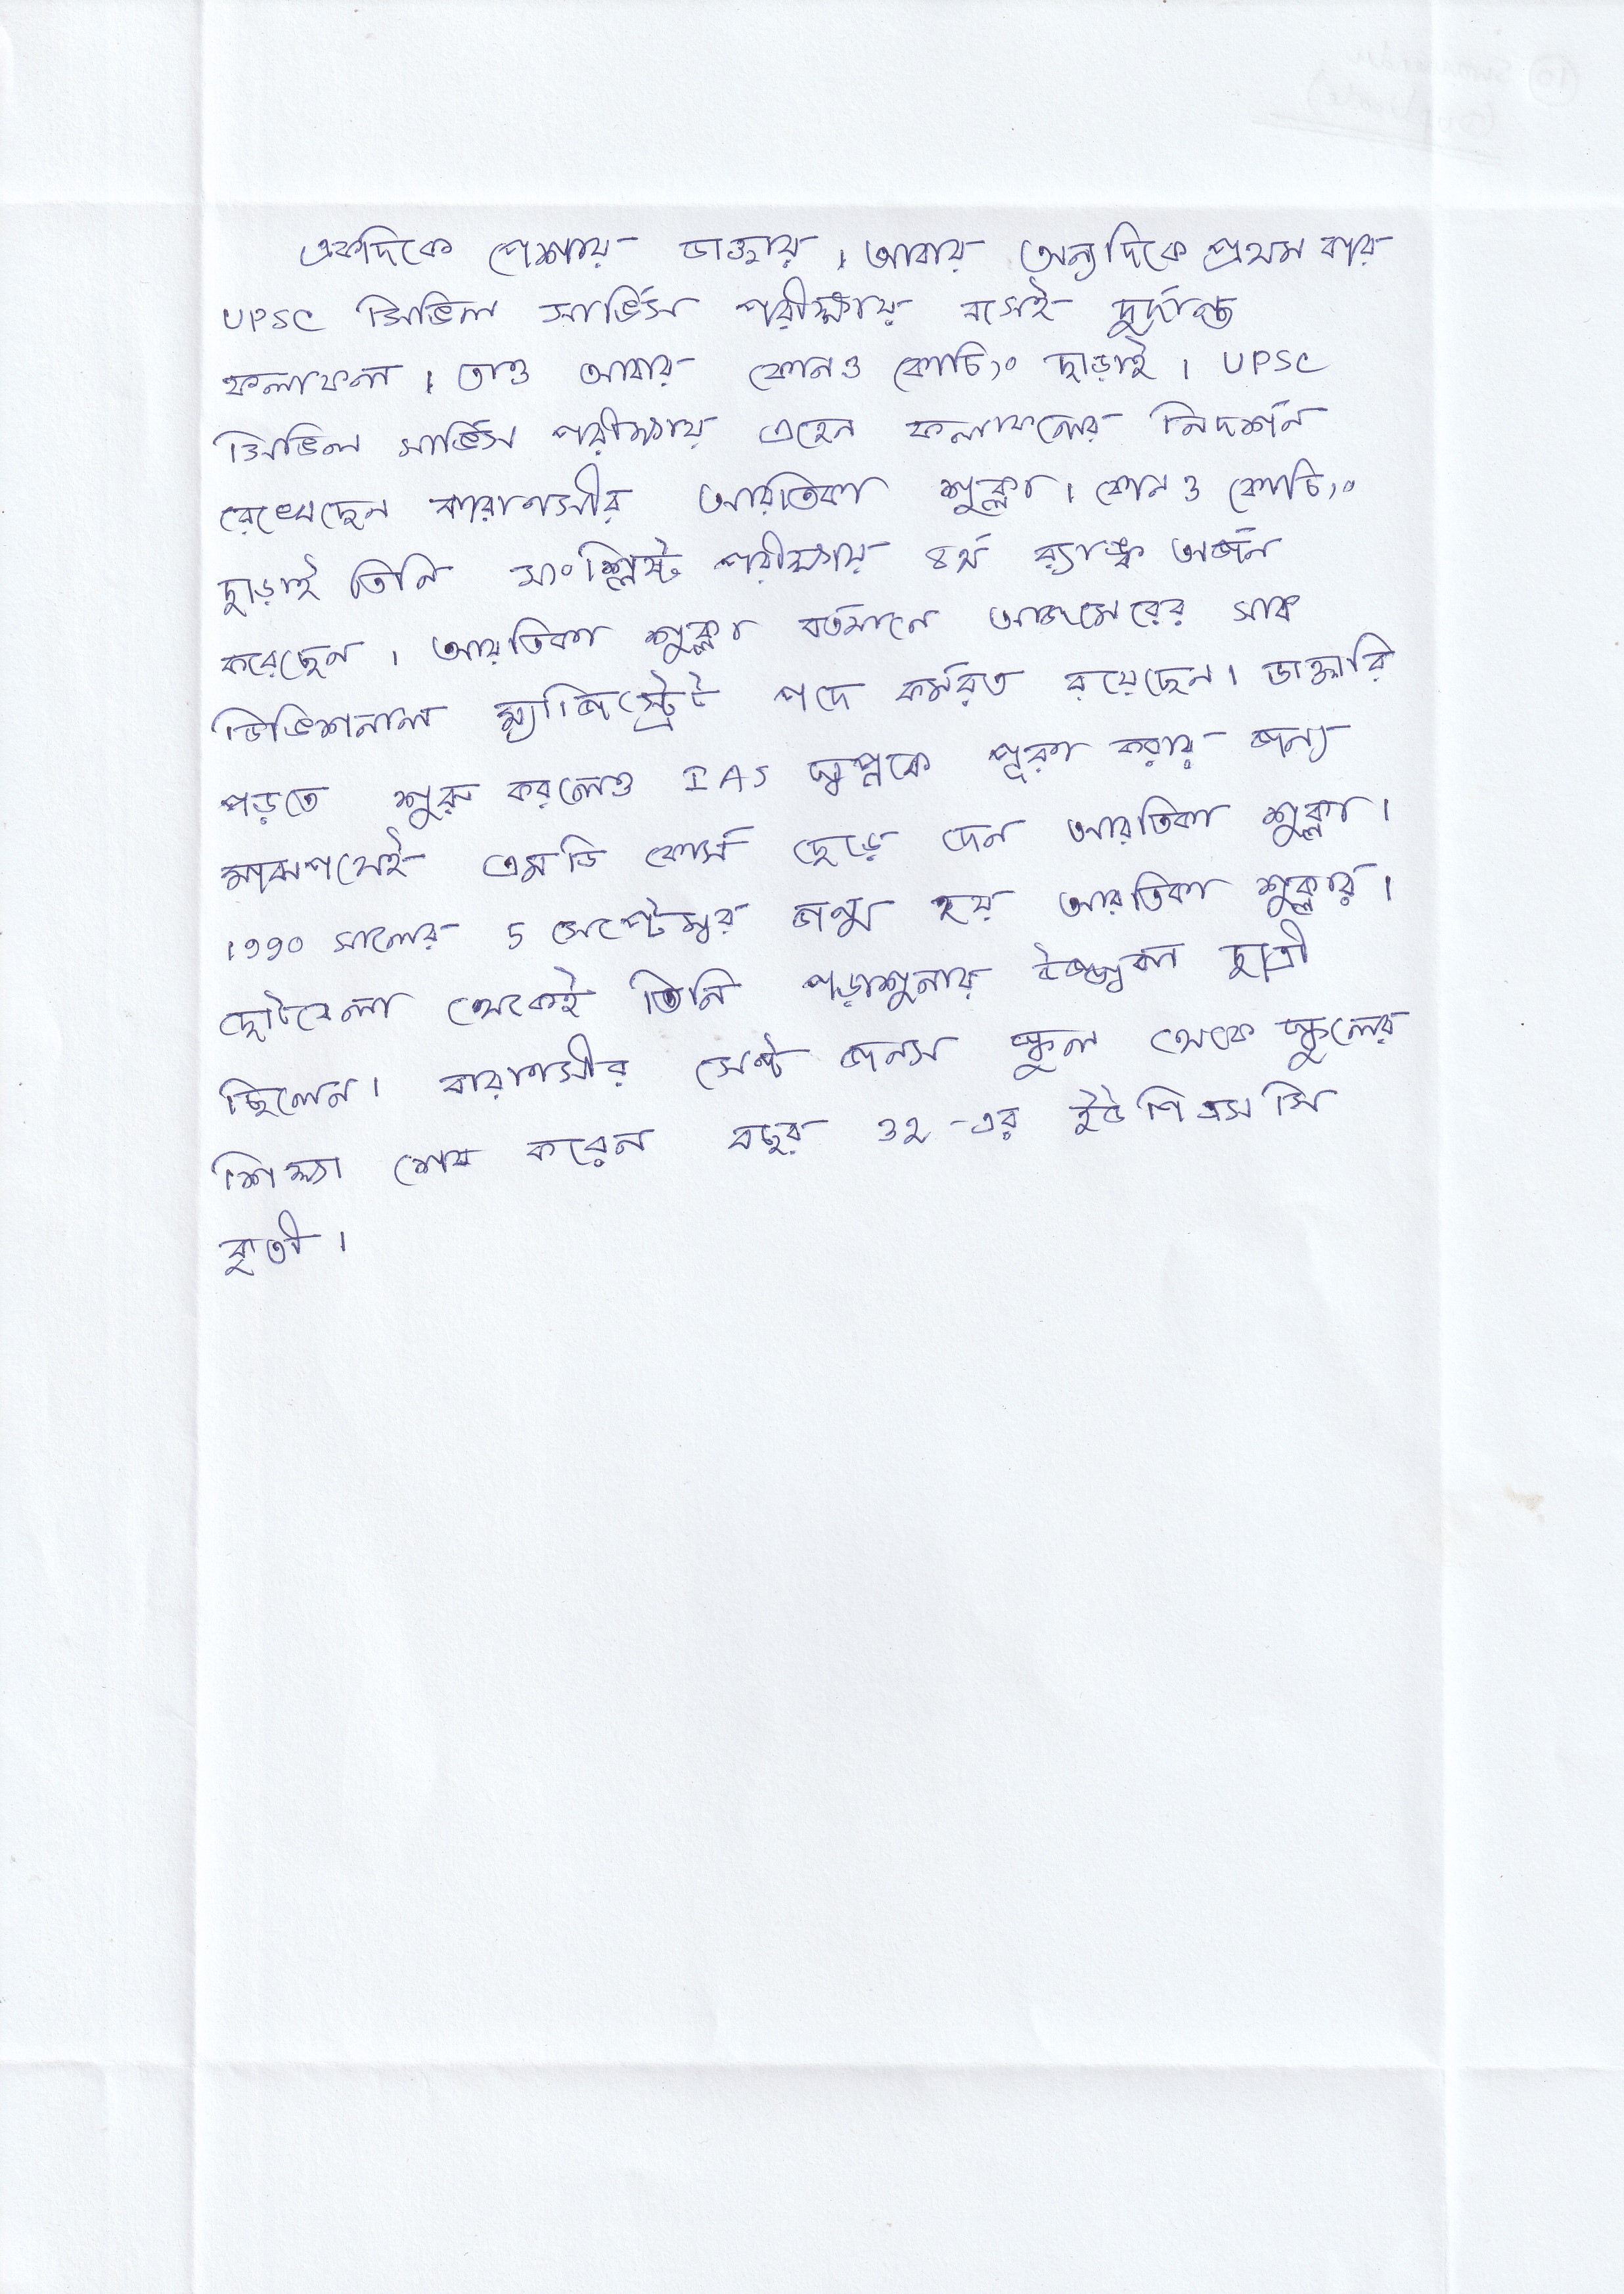 একদিকে পেশায় ডাক্তার, আবার অন্যদিকে প্রথম বার
UPSC সিভিল সার্ভিস পরীক্ষায় বসেই দুর্দান্ত
ফলাফল। তাও আবার কোনও কোচিং ছাড়াই। UPSC
সিভিল সার্ভিস পরীক্ষায় এহেন ফলাফলের নিদর্শন
রেখেছেন বারাণসীর আরতিকা শুক্লা। কোনও কোচিং
ছাড়াই তিনি সংশ্লিষ্ট পরীক্ষায় ৪র্থ র‍্যাঙ্ক অর্জন
করেছেন। আরতিকা শুক্লা বর্তমানে আজমেরের সাব
ডিভিশনাল ম্যাজিস্ট্রেট পদে কর্মরত রয়েছেন। ডাক্তারি
পড়তে শুরু করলেও IAS স্বপ্নকে পূরণ করার জন্য
মাঝপথেই এমডি কোর্স ছেড়ে দেন আরতিকা শুক্লা।
1990 সালের 5 সেপ্টেম্বর জন্ম হয় আরতিকা শুক্লার।
ছোটবেলা থেকেই তিনি পড়াশুনায় ছাত্রী
ছিলেন। বারাণসীর সেন্ট জনস স্কুল থেকে স্কুলের
শিক্ষা শেষ করেন বছর ৩২-এর ইউপিএসসি
কৃতী।